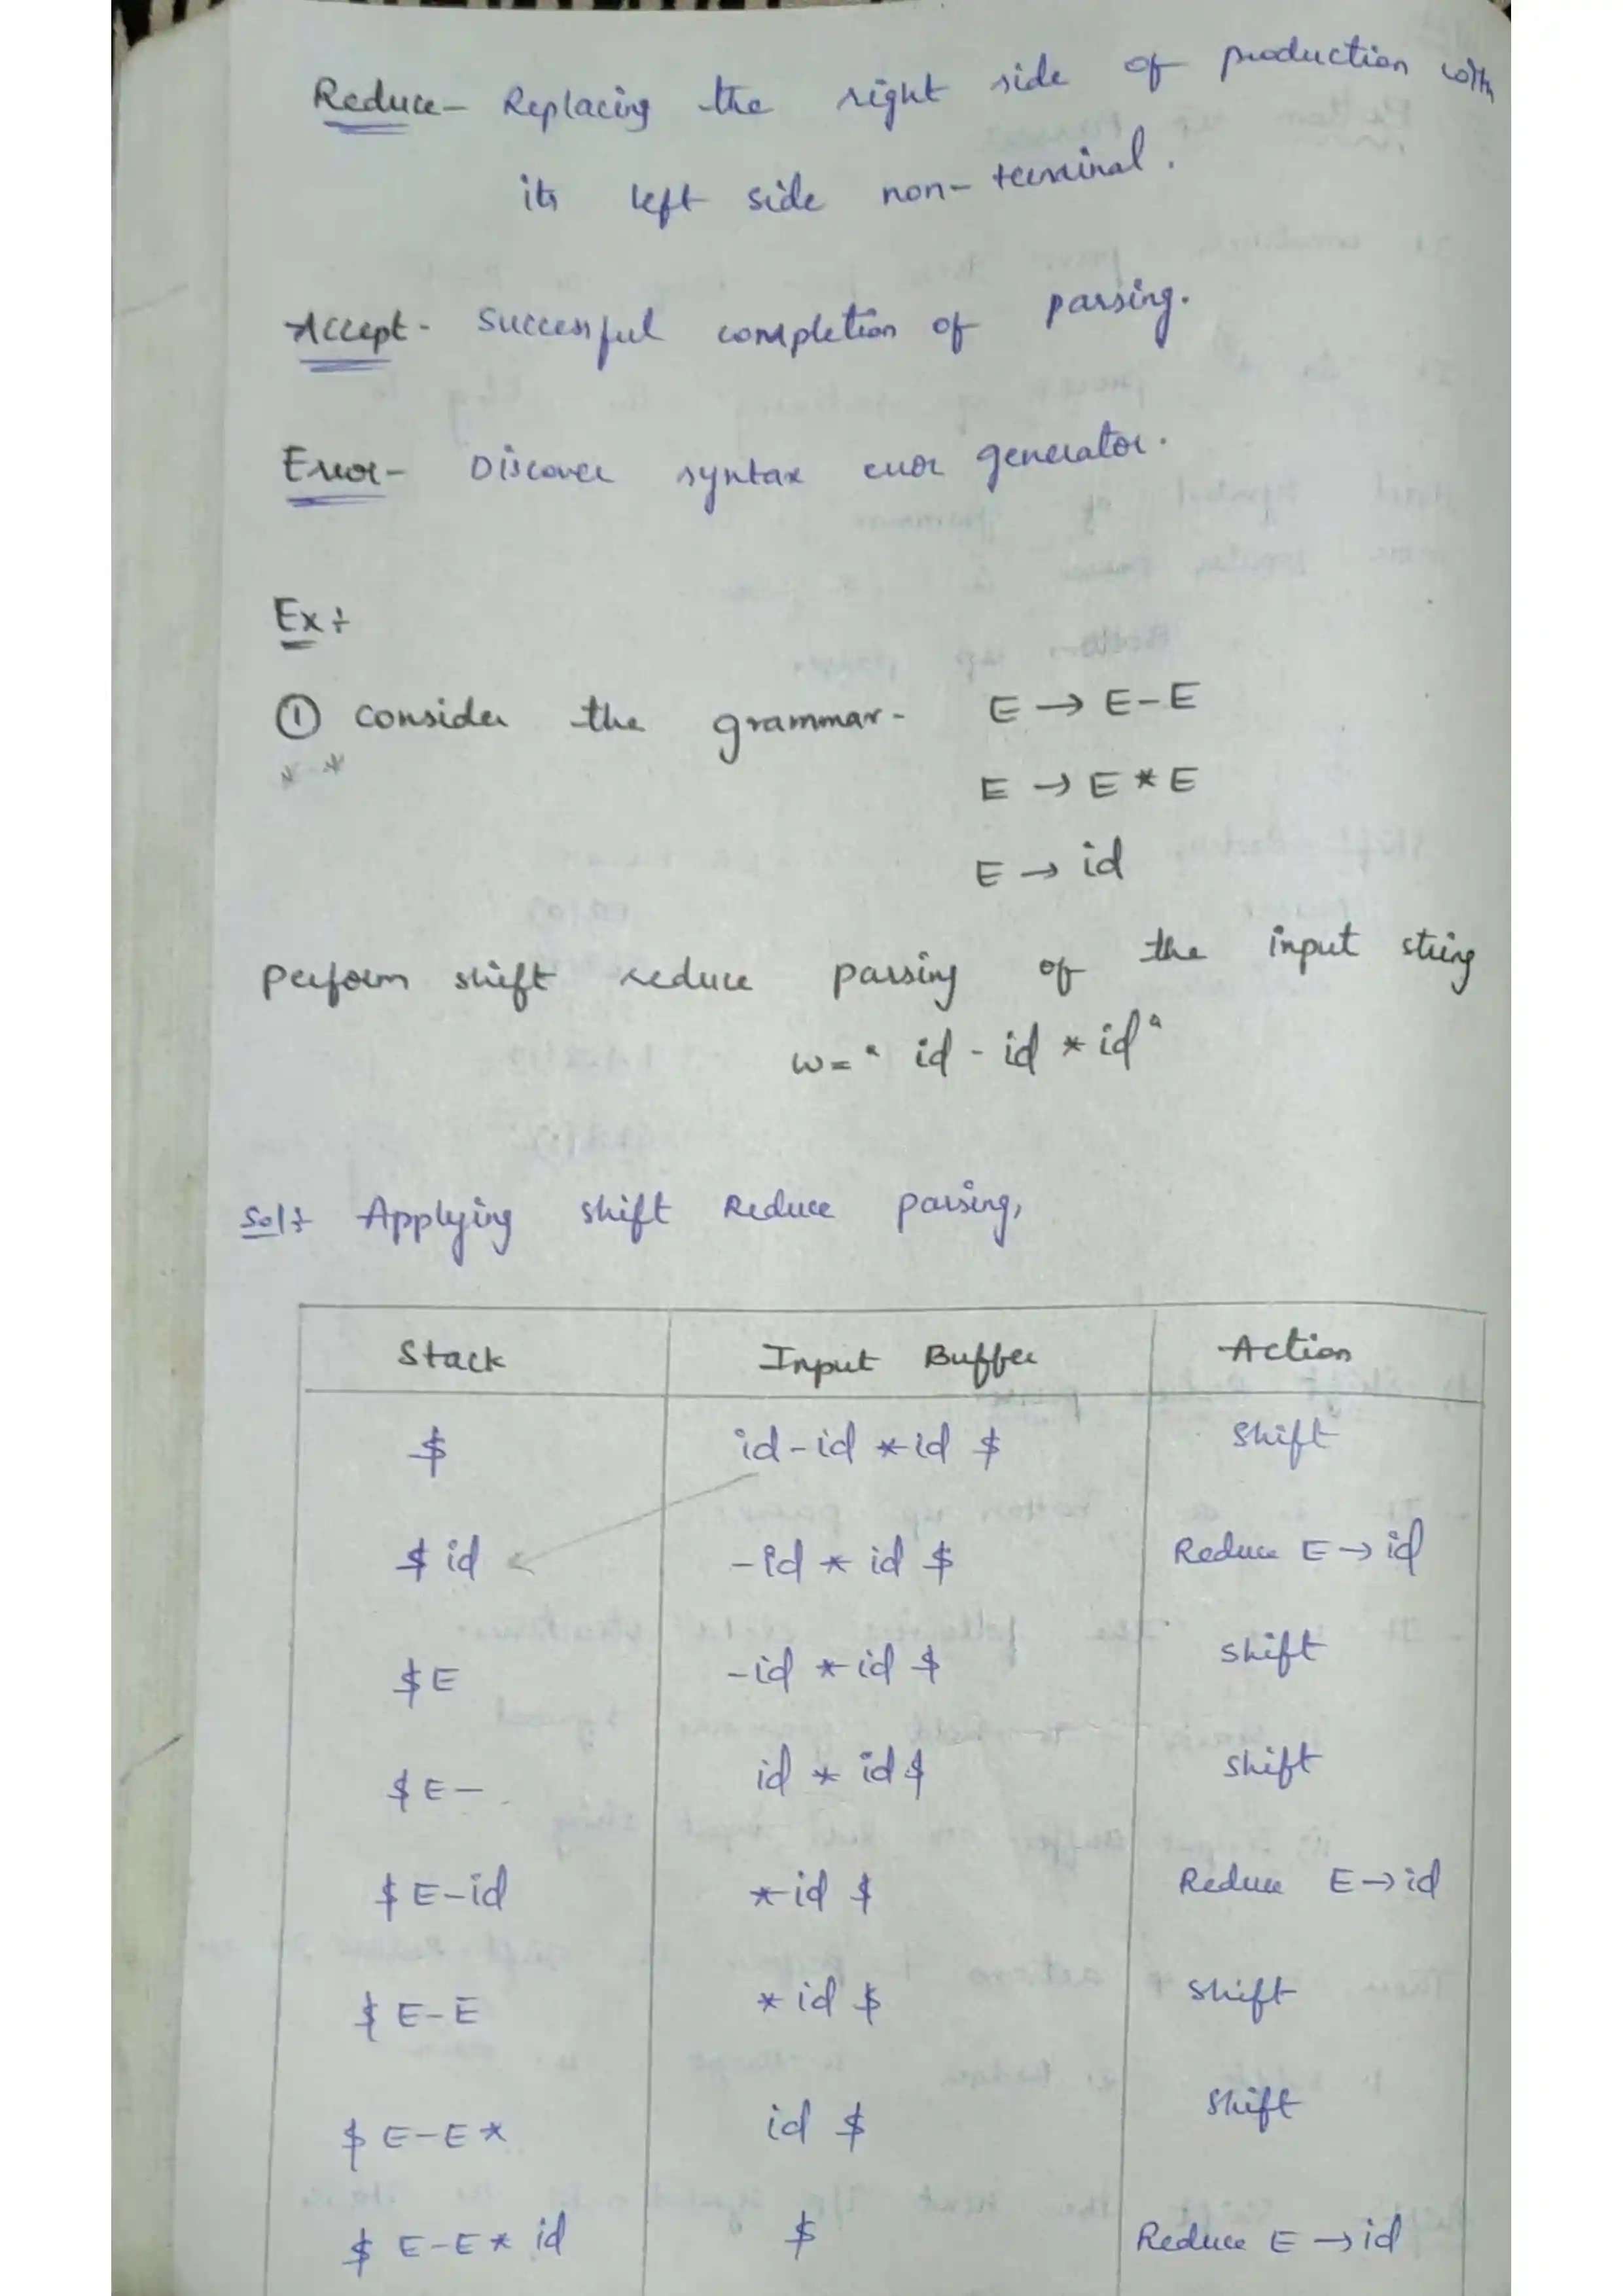 Reduce- Replacing the right side of production with
its left side non-terminal.
Accept- Successful completion of parsing.
Error- Discover syntax error generator.
Ex:
① consider the grammar- E → E-E
* *
E → E * E
E → id
perform shift reduce parsing of the input string
w= " id - id * id "
Sol: Applying shift Reduce parsing,
Stack Input Buffer Action
$ id-id *id $ Shift
$ id -id * id $ Reduce E → id
$ E -id * id $ Shift
$ E - id * id $ Shift
$ E-id *id $ Reduce E → id
$ E-E * id $ Shift
$ E-E * id $ Shift
$ E-E * id $ Reduce E → id